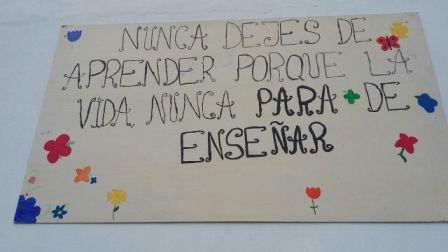 NUNCA DEJES DE
APRENDER PORQUE LA
VIDA NUNCA PARA DE
ENSEÑAR